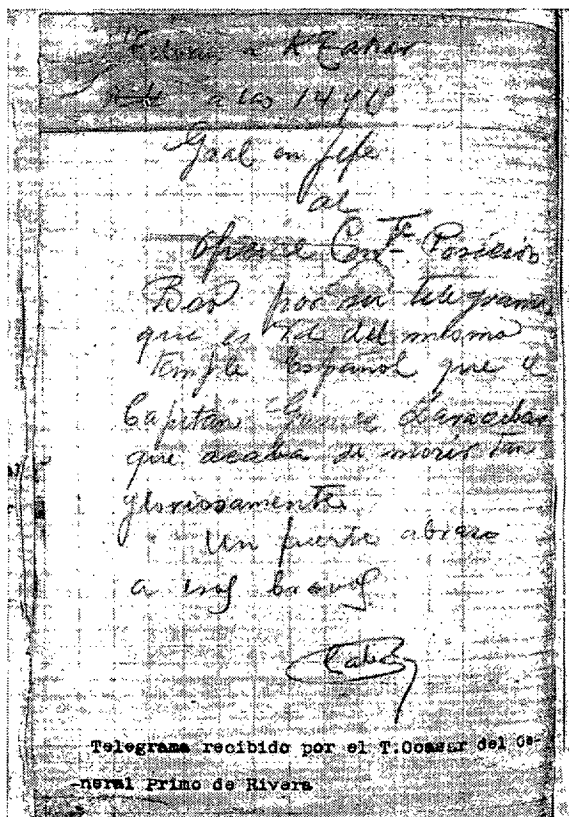 a K Zahar
a las 14 y 10
Gral en Jefe
al
Oficial Comte Posición
por su telegrama
que es Vd del mismo
temple Español que el
Capitan Gomez
que acaba de morir tan
gloriosamente
Un fuerte abrazo
a esos bravos
Telegrama recibido por el T. del Ge-
-neral Primo de Rivera